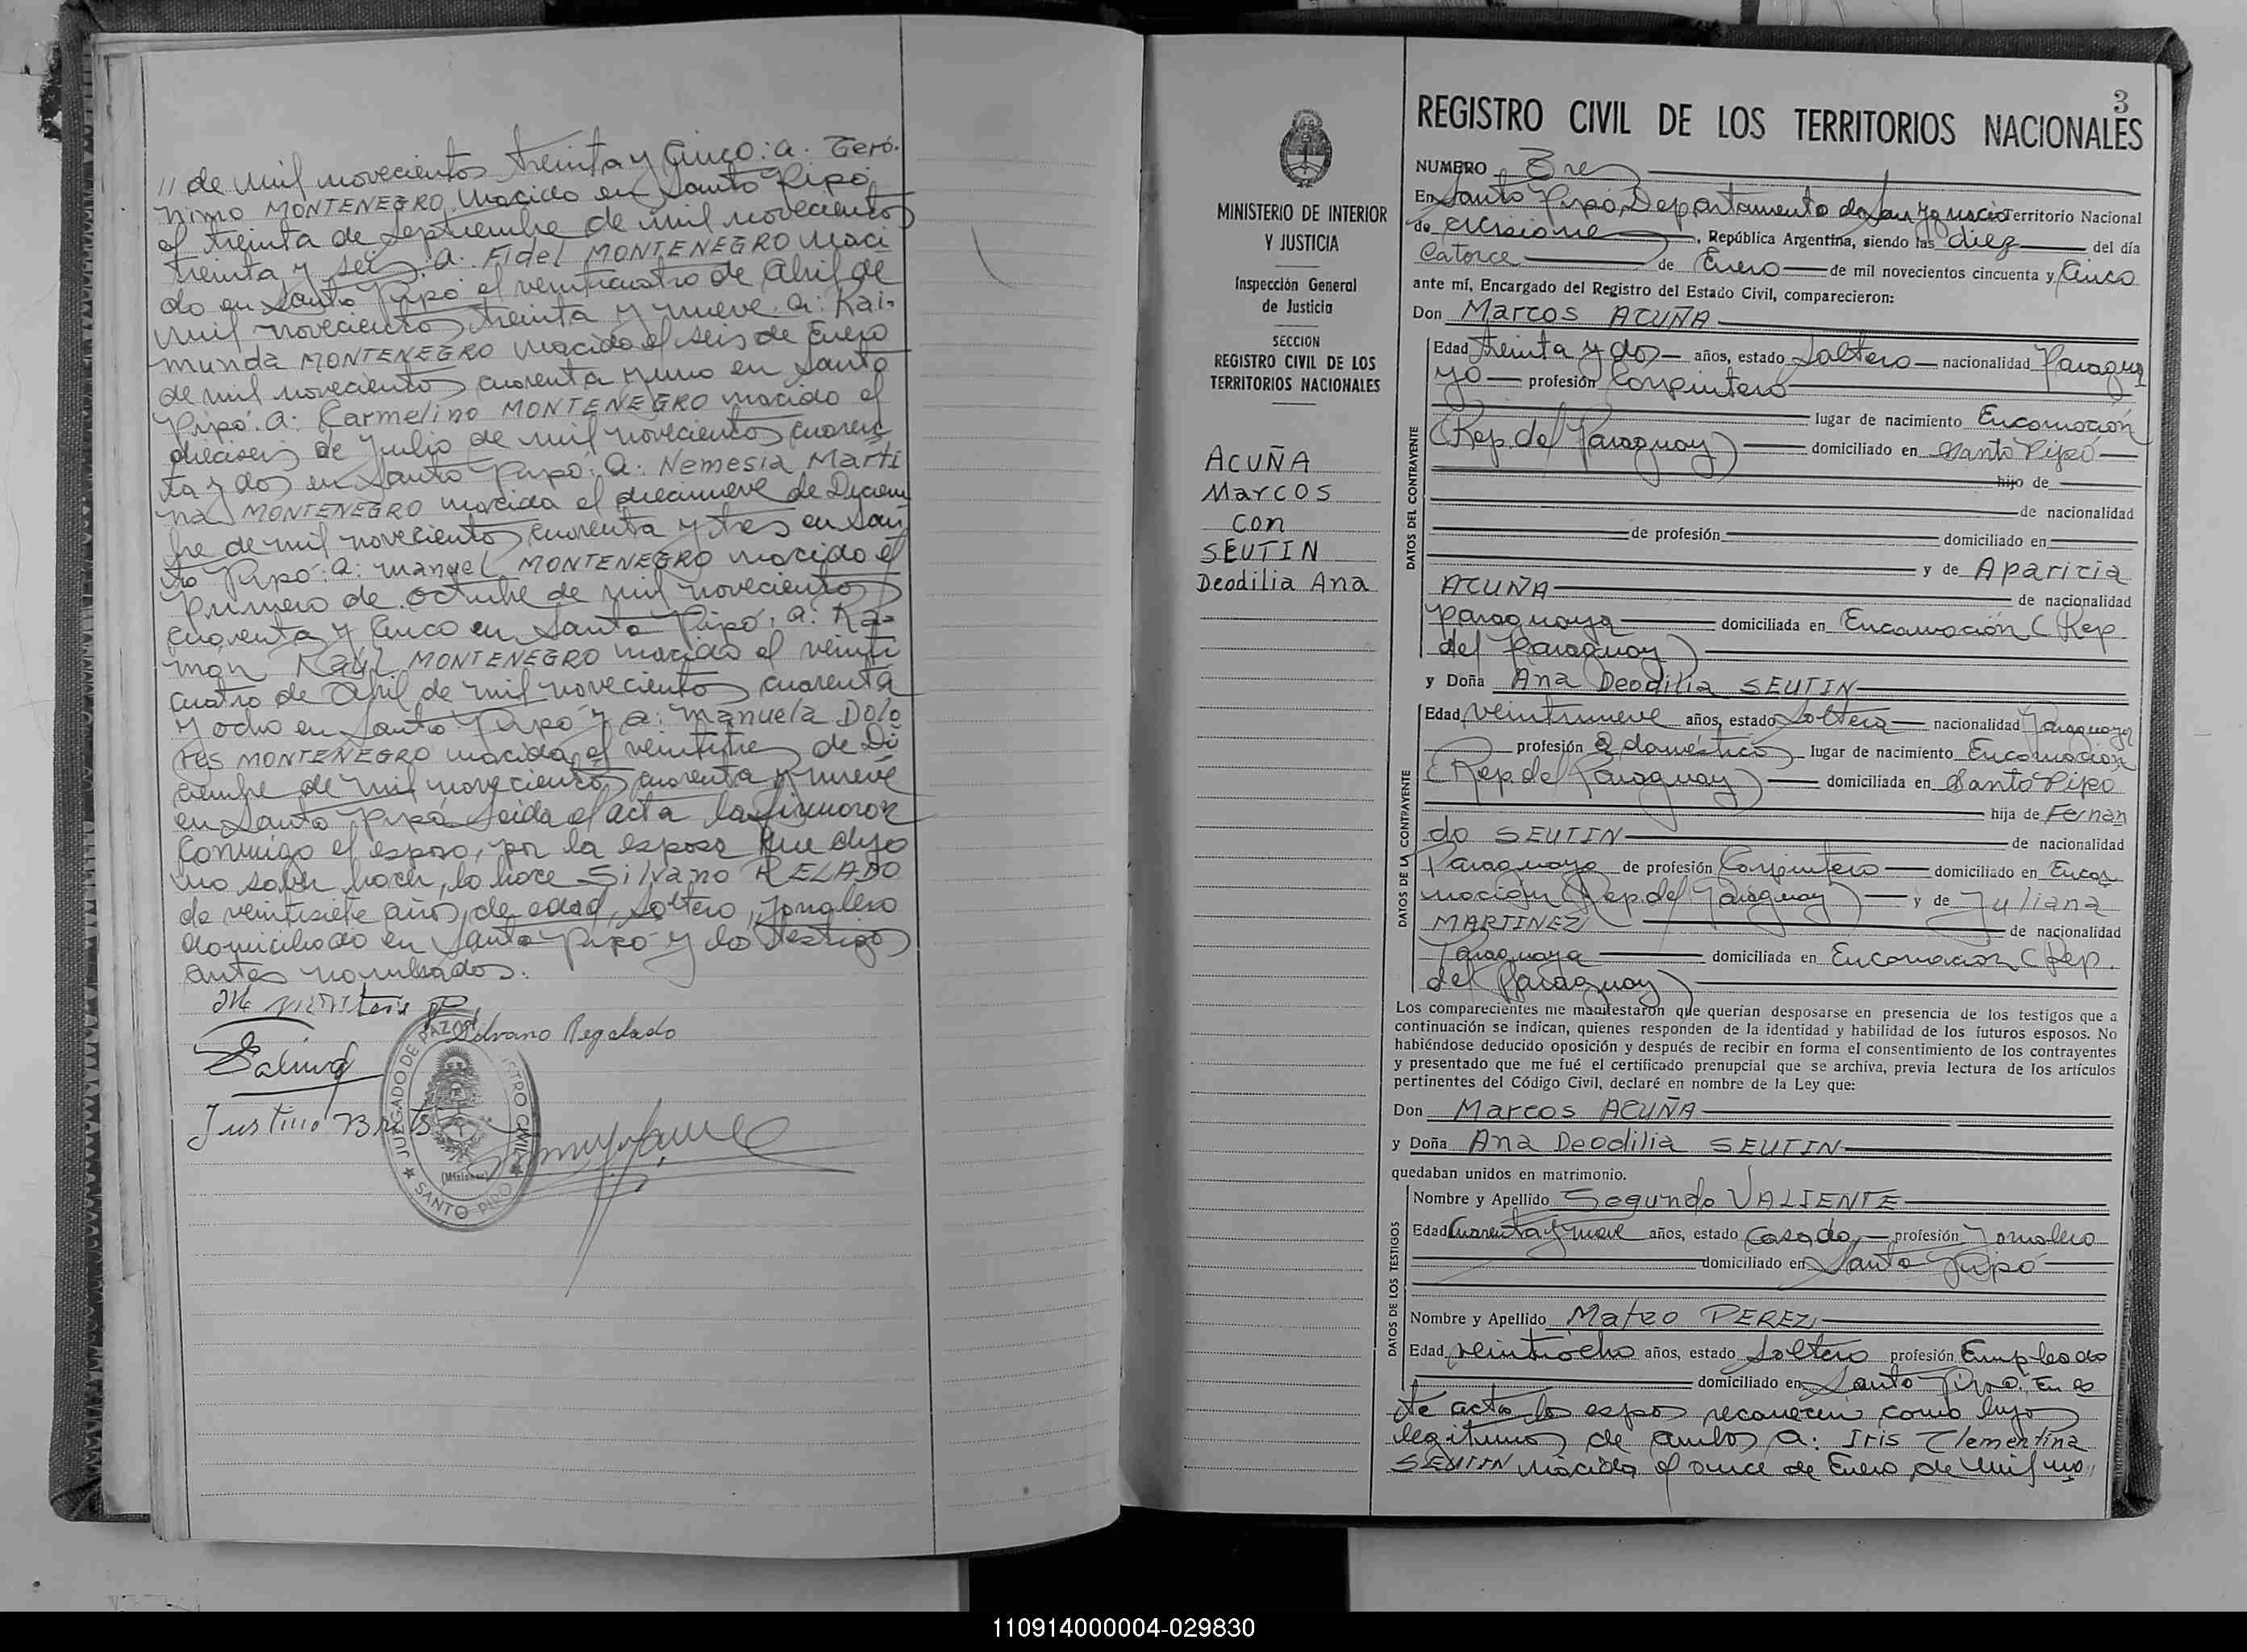 // de mil novecientos treinta y cinco: a: Geró-
nimo MONTENEGRO nacido en Santo Pipó
el treinta de Septiembre de mil novecientos
treinta y seis: a: Fidel MONTENEGRO naci
do en Santo Pipó el veinticuatro de Abril de
mil novecientos treinta y nueve. a: Rai-
munda MONTENEGRO nacida el seis de Enero
de mil novecientos cuarenta y uno en Santo
Pipó: a: Carmelino MONTENEGRO nacido el
dieciseis de Julio de mil novecientos cuaren
ta y dos en Santo Pipó: a: Nemesia Marti
na MONTENEGRO nacida el diecinueve de Diciem
bre de mil novecientos cuarenta y tres en San
to Pipó: a: Manuel MONTENEGRO nacido el
primero de Octubre de mil novecientos
cuarenta y cinco en Santo Pipó: a: Ra-
món Raúl MONTENEGRO nacido el veinti
cuatro de Abril de mil novecientos cuarenta
y ocho en Santo Pipó y a: Manuela Dolo
res MONTENEGRO nacida el veintitres de Di
ciembre de mil novecientos cuarenta y nueve
en Santo Pipó Leida el acta la firmaron
conmigo el esposo, por la esposa que dijo
no saber hacer, lo hace Silvano REGALADO
de veintisiete años de edad, soltero, Jornalero
domiciliado en Santo Pipó y los testigos
antes nombrados.
Silvano Regalado
Justino Brits
JUZGADO DE PAZ
REGISTRO CIVIL
(Misiones)
SANTO PIPO
MINISTERIO DE INTERIOR
Y JUSTICIA
Inspección General
de Justicia
SECCION
REGISTRO CIVIL DE LOS
TERRITORIOS NACIONALES
ACUÑA
Marcos
con
SEUTIN
Deodilia Ana
3
REGISTRO CIVIL DE LOS TERRITORIOS NACIONALES
NUMERO Tres
En Santo Pipó, Departamento de San Ignacio Territorio Nacional
de Misiones, República Argentina, siendo las diez del día
Catorce de Enero de mil novecientos cincuenta y Cinco
ante mí, Encargado del Registro del Estado Civil, comparecieron:
Don Marcos ACUÑA
DATOS DEL CONTRAYENTE
Edad treinta y dos años, estado Soltero nacionalidad Paragua
yo profesión Carpintero
lugar de nacimiento Encarnación
(Rep. del Paraguay) domiciliado en Santo Pipó
hijo de
de nacionalidad
de profesión domiciliado en
y de Aparicia
ACUÑA de nacionalidad
Paraguaya domiciliada en Encarnación (Rep
del Paraguay)
y Doña Ana Deodilia SEUTIN
DATOS DE LA CONTRAYENTE
Edad veintinueve años, estado Soltera nacionalidad Paraguaya
profesión Q. domésticos lugar de nacimiento Encarnación
(Rep. del Paraguay) domiciliada en Santo Pipó
hija de Fernan
do SEUTIN de nacionalidad
Paraguayo de profesión Carpintero domiciliado en Encar
nación (Rep del Paraguay) y de Juliana
MARTINEZ de nacionalidad
Paraguaya domiciliada en Encarnacion (Rep.
del Paraguay)
Los comparecientes me manifestaron que querían desposarse en presencia de los testigos que a
continuación se indican, quienes responden de la identidad y habilidad de los futuros esposos. No
habiéndose deducido oposición y después de recibir en forma el consentimiento de los contrayentes
y presentado que me fué el certificado prenupcial que se archiva, previa lectura de los artículos
pertinentes del Código Civil, declaré en nombre de la Ley que:
Don Marcos ACUÑA
y Doña Ana Deodilia SEUTIN
quedaban unidos en matrimonio.
DATOS DE LOS TESTIGOS
Nombre y Apellido Segundo VALIENTE
Edad Cuarenta y nueve años, estado Casado profesión Jornalero
domiciliado en Santo Pipó
Nombre y Apellido Mateo PEREZ
Edad veintiocho años, estado Soltero profesión Empleado
domiciliado en Santo Pipó. En es
te acto los espos reconocen como hijos
legitimos de ambos a: Iris Clementina
SEUTIN nacida el once de Enero de mil no//
110914000004-029830